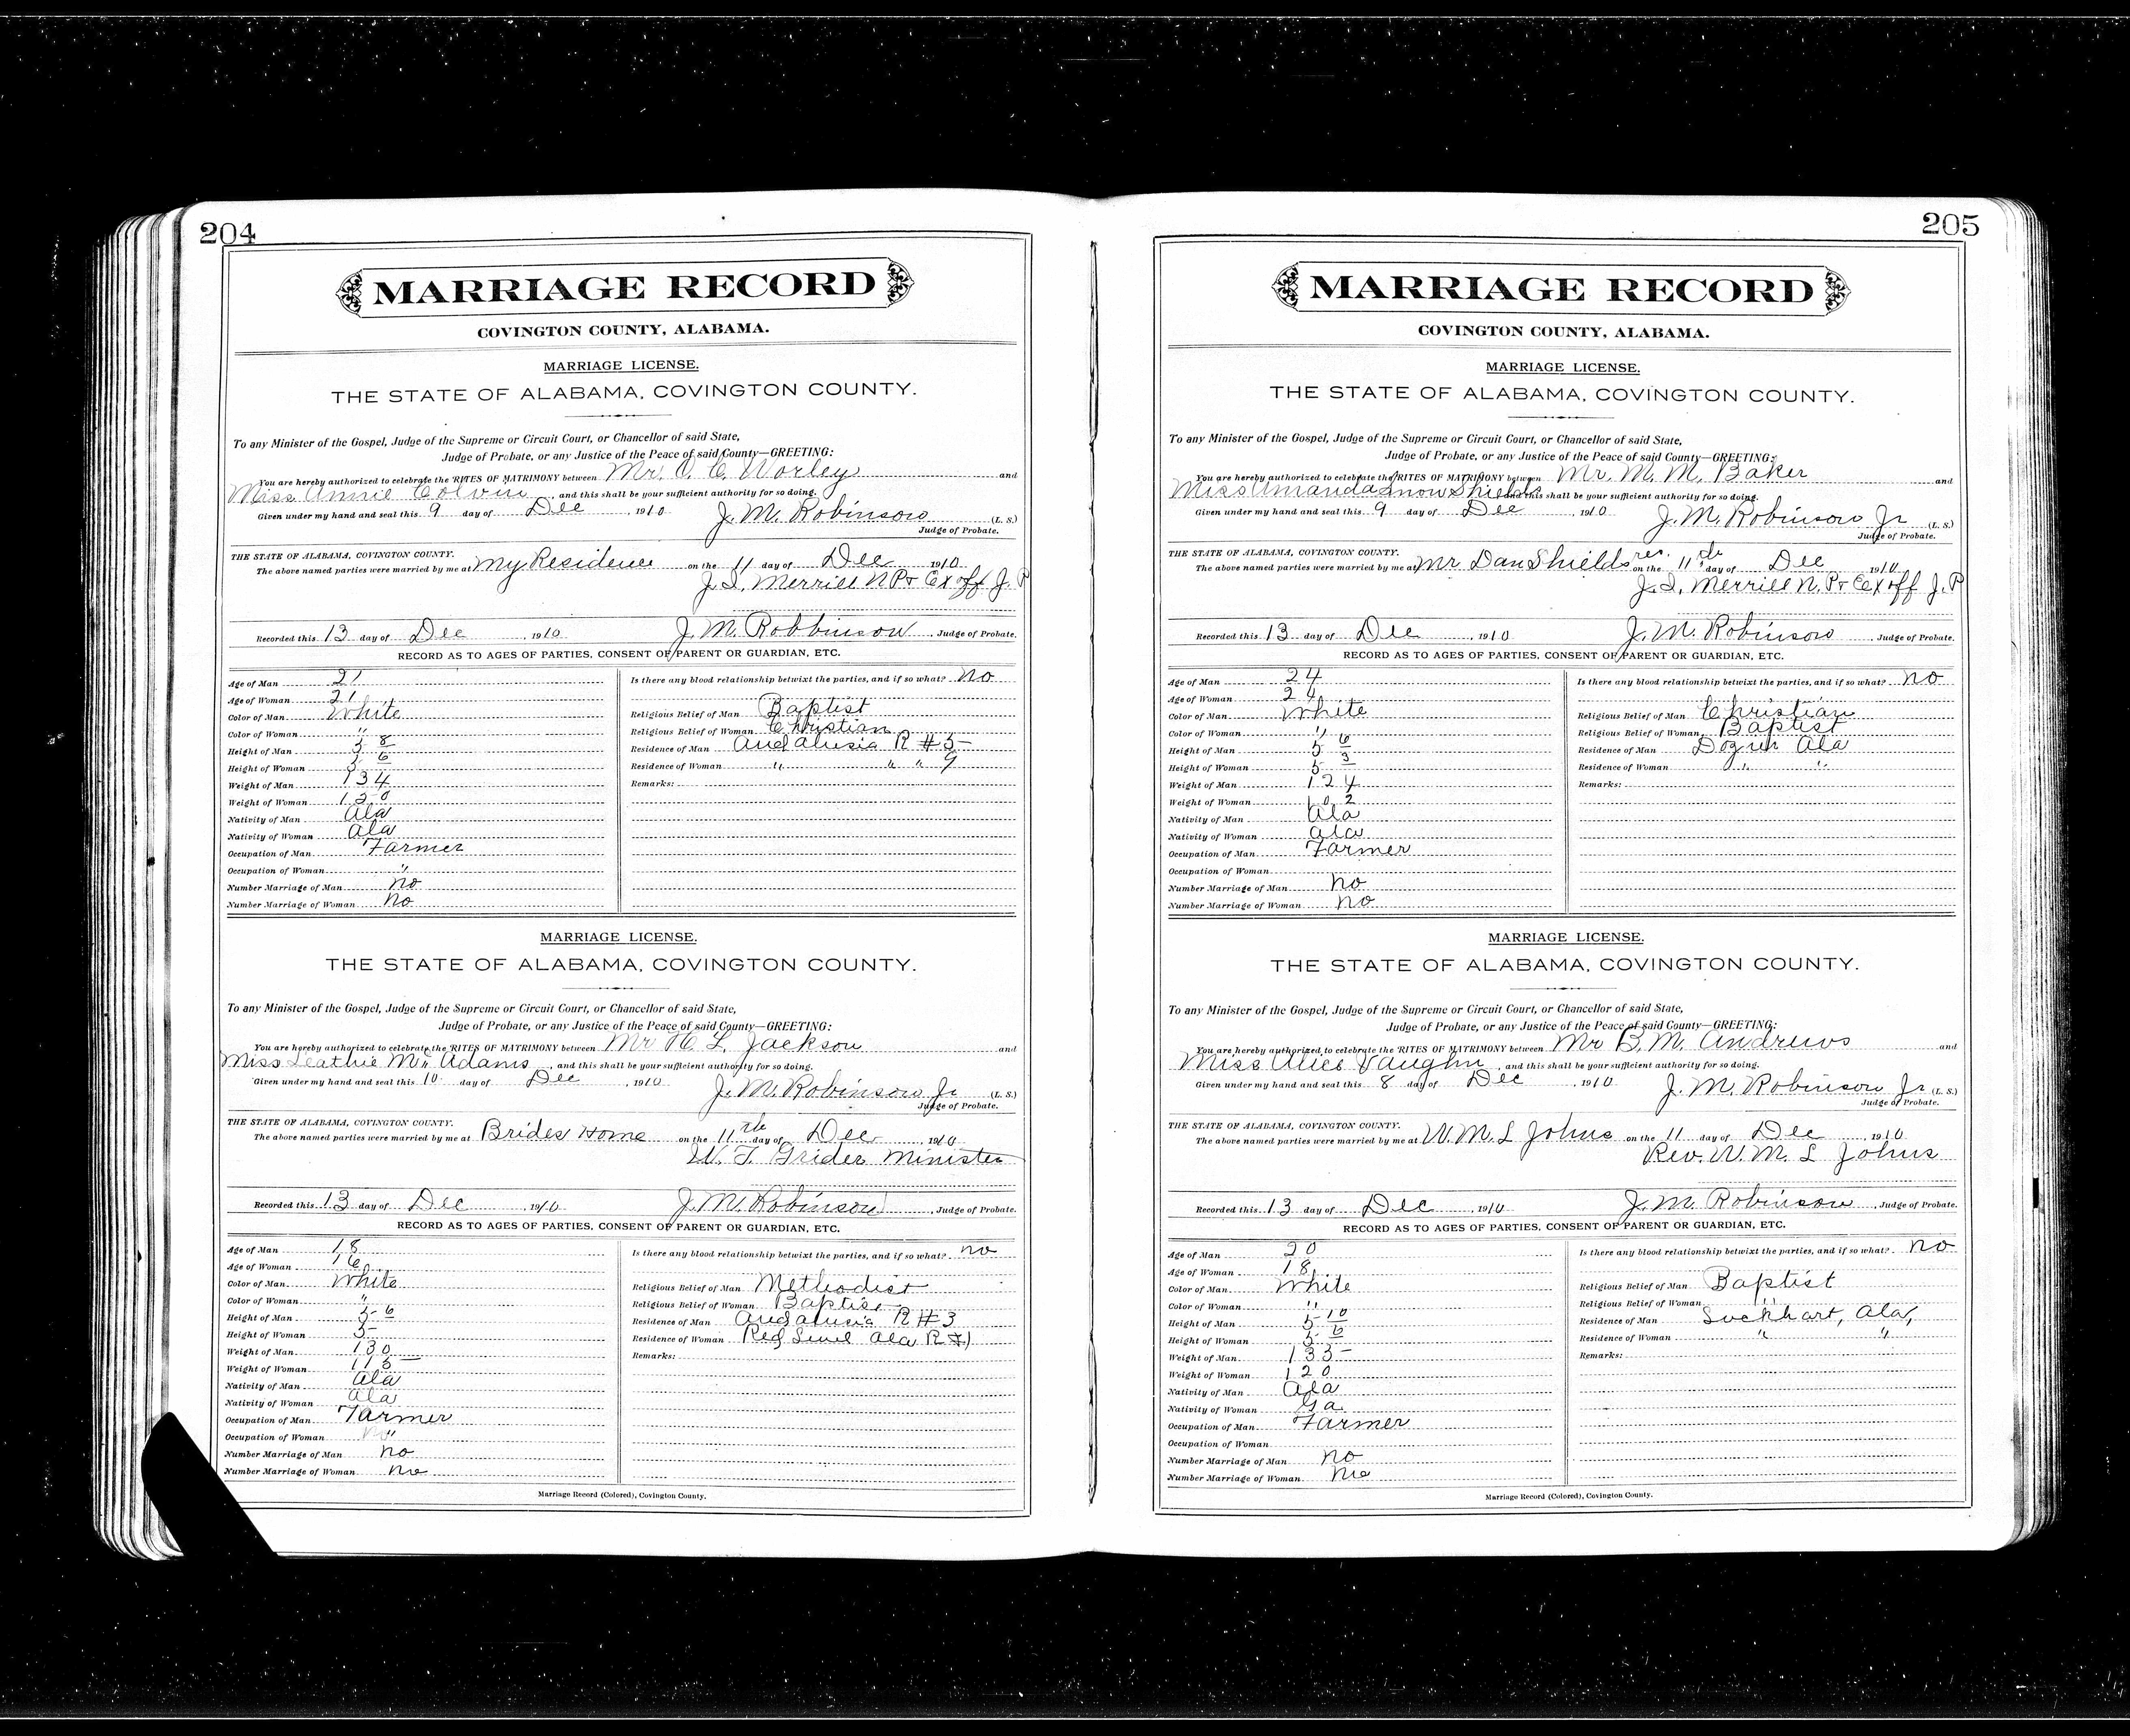 204
MARRIAGE RECORD
COVINGTON COUNTY, ALABAMA.
MARRIAGE LICENSE.
THE STATE OF ALABAMA, COVINGTON COUNTY.
To any Minister of the Gospel, Judge of the Supreme or Circuit Court, or Chancellor of said State,
Judge of Probate, or any Justice of the Peace of said County—GREETING:
You are hereby authorized to celebrate the RITES OF MATRIMONY between Mr. O. C. Worley and
Miss Annie Colvin, and this shall be your sufficient authority for so doing.
Given under my hand and seal this 9 day of Dec, 1910. J. M. Robinson (L. S.)
Judge of Probate.
THE STATE OF ALABAMA, COVINGTON COUNTY.
The above named parties were married by me at My Residence on the 11 day of Dec 1910.
J. I. Merrill N.P. & Ex off J. P
Recorded this 13 day of Dec, 1910. J. M. Robbinson, Judge of Probate.
RECORD AS TO AGES OF PARTIES, CONSENT OF PARENT OR GUARDIAN, ETC.
Age of Man 21
Age of Woman 21
Color of Man White
Color of Woman "
Height of Man 5 8
Height of Woman 5 6
Weight of Man 134
Weight of Woman 130
Nativity of Man Ala
Nativity of Woman Ala
Occupation of Man Farmer
Occupation of Woman "
Number Marriage of Man No
Number Marriage of Woman No
Is there any blood relationship betwixt the parties, and if so what? No
Religious Belief of Man Baptist
Religious Belief of Woman Christian
Residence of Man Andalusia R #5
Residence of Woman " " " 9
Remarks:
MARRIAGE LICENSE.
THE STATE OF ALABAMA, COVINGTON COUNTY.
To any Minister of the Gospel, Judge of the Supreme or Circuit Court, or Chancellor of said State,
Judge of Probate, or any Justice of the Peace of said County—GREETING:
You are hereby authorized to celebrate the RITES OF MATRIMONY between Mr H. L. Jackson and
Miss Leathie Mc Adams, and this shall be your sufficient authority for so doing.
Given under my hand and seal this 10 day of Dec, 1910. J. M. Robinson Jr (L. S.)
Judge of Probate.
THE STATE OF ALABAMA, COVINGTON COUNTY.
The above named parties were married by me at Brides Home on the 11th day of Dec, 1910.
W. T. Grider Minister
Recorded this 13 day of Dec 1910. J. M. Robinson, Judge of Probate.
RECORD AS TO AGES OF PARTIES, CONSENT OF PARENT OR GUARDIAN, ETC.
Age of Man 18
Age of Woman 16
Color of Man White
Color of Woman "
Height of Man 5-6
Height of Woman 5-
Weight of Man 130
Weight of Woman 115
Nativity of Man Ala
Nativity of Woman Ala
Occupation of Man Farmer
Occupation of Woman
Number Marriage of Man No
Number Marriage of Woman No
Is there any blood relationship betwixt the parties, and if so what? No
Religious Belief of Man Methodist
Religious Belief of Woman Baptist
Residence of Man Andalusia R #3
Residence of Woman Red Level Ala R #1
Remarks:
Marriage Record (Colored), Covington County.
205
MARRIAGE RECORD
COVINGTON COUNTY, ALABAMA.
MARRIAGE LICENSE.
THE STATE OF ALABAMA, COVINGTON COUNTY.
To any Minister of the Gospel, Judge of the Supreme or Circuit Court, or Chancellor of said State,
Judge of Probate, or any Justice of the Peace of said County—GREETING:
You are hereby authorized to celebrate the RITES OF MATRIMONY between Mr. M. M. Baker and
Miss Amanda Snow Shields and this shall be your sufficient authority for so doing.
Given under my hand and seal this 9 day of Dec, 1910. J. M. Robinson Jr (L. S.)
Judge of Probate.
THE STATE OF ALABAMA, COVINGTON COUNTY.
The above named parties were married by me at Mr Dan Shields res. on the 11th day of Dec 1910.
J. I. Merrill N. P. & Ex off J. P
Recorded this 13 day of Dec, 1910. J. M. Robinson, Judge of Probate.
RECORD AS TO AGES OF PARTIES, CONSENT OF PARENT OR GUARDIAN, ETC.
Age of Man 24
Age of Woman 24
Color of Man White
Color of Woman "
Height of Man 5 6
Height of Woman 5 3
Weight of Man 124
Weight of Woman 102
Nativity of Man Ala
Nativity of Woman Ala
Occupation of Man Farmer
Occupation of Woman
Number Marriage of Man No
Number Marriage of Woman No
Is there any blood relationship betwixt the parties, and if so what? No
Religious Belief of Man Christian
Religious Belief of Woman Baptist
Residence of Man Dozier Ala
Residence of Woman " "
Remarks:
MARRIAGE LICENSE.
THE STATE OF ALABAMA, COVINGTON COUNTY.
To any Minister of the Gospel, Judge of the Supreme or Circuit Court, or Chancellor of said State,
Judge of Probate, or any Justice of the Peace of said County—GREETING:
You are hereby authorized to celebrate the RITES OF MATRIMONY between Mr B. M. Andrews and
Miss Alice Vaughn, and this shall be your sufficient authority for so doing.
Given under my hand and seal this 8 day of Dec, 1910. J. M. Robinson Jr (L. S.)
Judge of Probate.
THE STATE OF ALABAMA, COVINGTON COUNTY.
The above named parties were married by me at W. M. L Johns on the 11 day of Dec, 1910.
Rev. W. M. L Johns
Recorded this 13 day of Dec, 1910. J. M. Robinson, Judge of Probate.
RECORD AS TO AGES OF PARTIES, CONSENT OF PARENT OR GUARDIAN, ETC.
Age of Man 20
Age of Woman 18
Color of Man White
Color of Woman "
Height of Man 5-10
Height of Woman 5-6
Weight of Man 135
Weight of Woman 120
Nativity of Man Ala
Nativity of Woman Ga
Occupation of Man Farmer
Occupation of Woman
Number Marriage of Man No
Number Marriage of Woman No
Is there any blood relationship betwixt the parties, and if so what? No
Religious Belief of Man Baptist
Religious Belief of Woman "
Residence of Man Lockhart, Ala,
Residence of Woman " "
Remarks:
Marriage Record (Colored), Covington County.